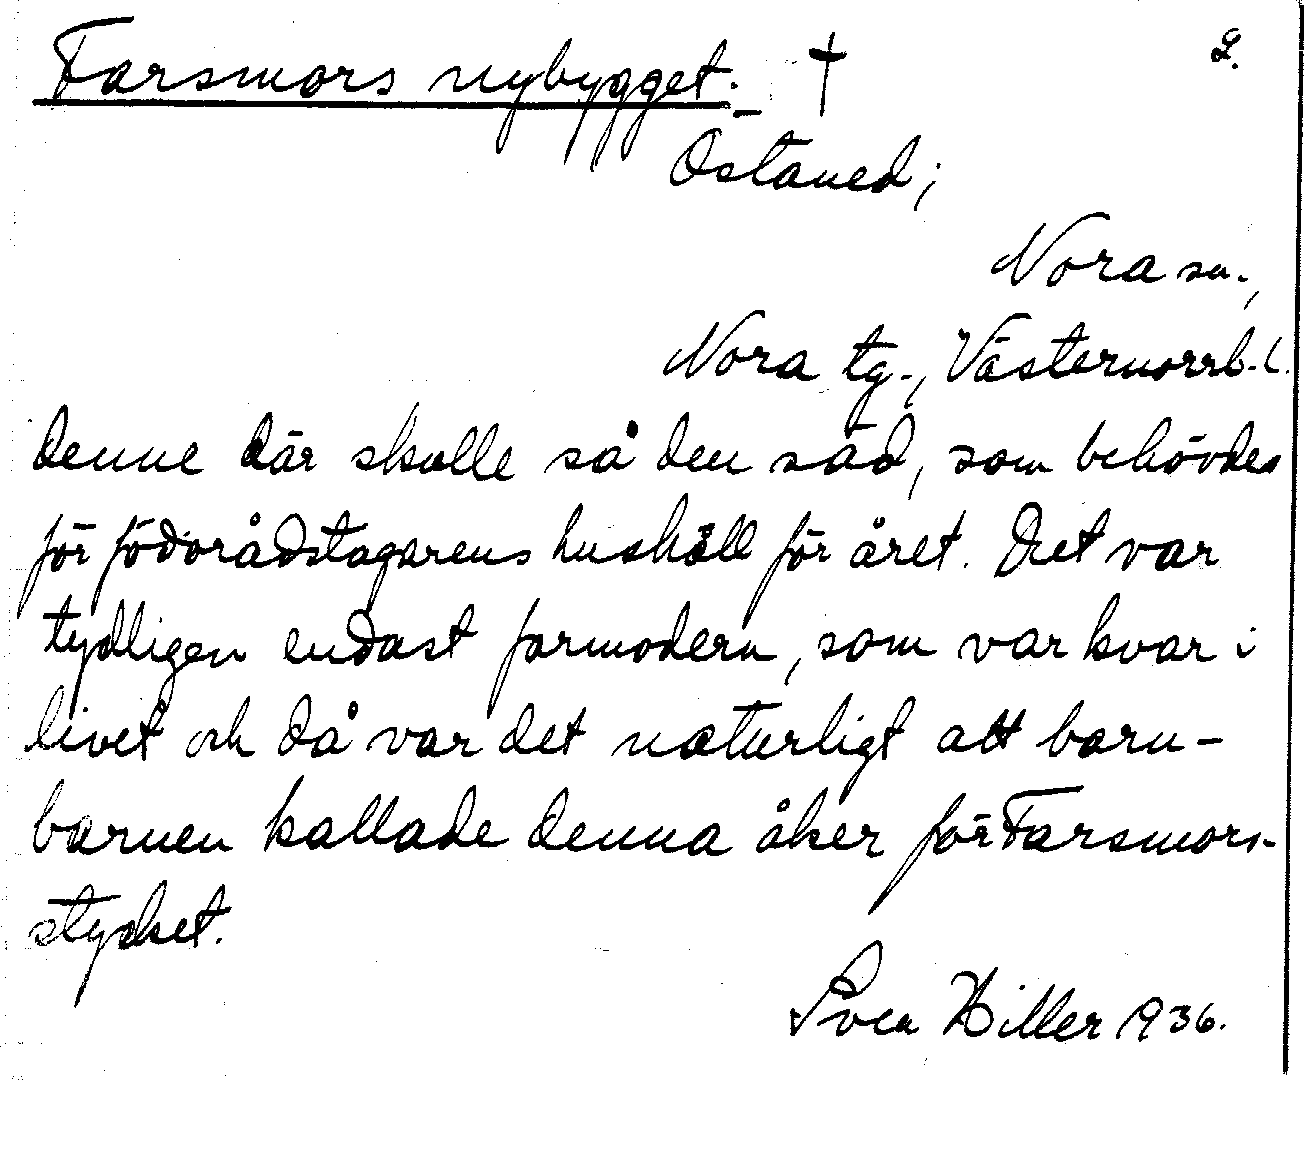 Farsmors nybygget. † 2.
Östaned;
Nora sn.,
Nora tg., Västernorrl. l.
denne där skulle så den säd, som behövdes
för födorådstagarens hushåll för året. Det var
tydligen endast farmodern, som var kvar i
livet och då var det naturligt att barn-
barnen kallade denna åker för Farsmors-
stycket.
Sven Hiller 1936.